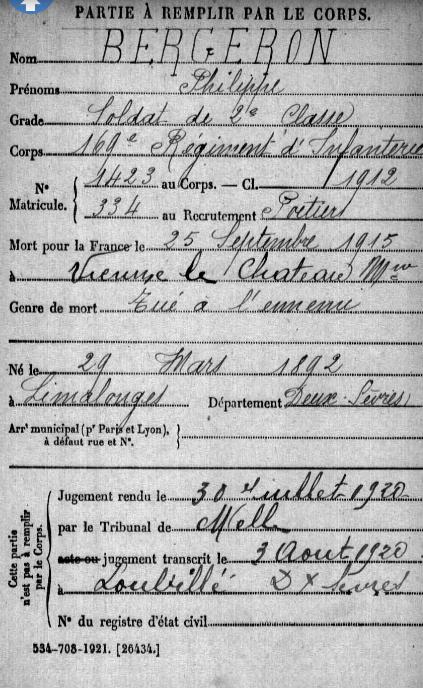 PARTIE À REMPLIR PAR LE CORPS.
Nom BERGERON
Prénoms Philippe
Grade Soldat de 2e Classe
Corps 169e Régiment d'Infanterie
N° Matricule. { 1423 au Corps. — Cl. 1912
334 au Recrutement Poitiers
Mort pour la France le 25 Septembre 1915
à Vienne le Chateau Mne
Genre de mort Tué à l'ennemi
Né le 29 Mars 1892
à Limalonges Département Deux-Sèvres
Arrt municipal (pr Paris et Lyon), à défaut rue et N°. }
Cette partie n'est pas à remplir par le Corps.
Jugement rendu le 30 Juillet 1920
par le Tribunal de Melle
acte ou jugement transcrit le 3 Aout 1920
à Loubillé Dx Sèvres
N° du registre d'état civil
534-708-1921. [26434.]